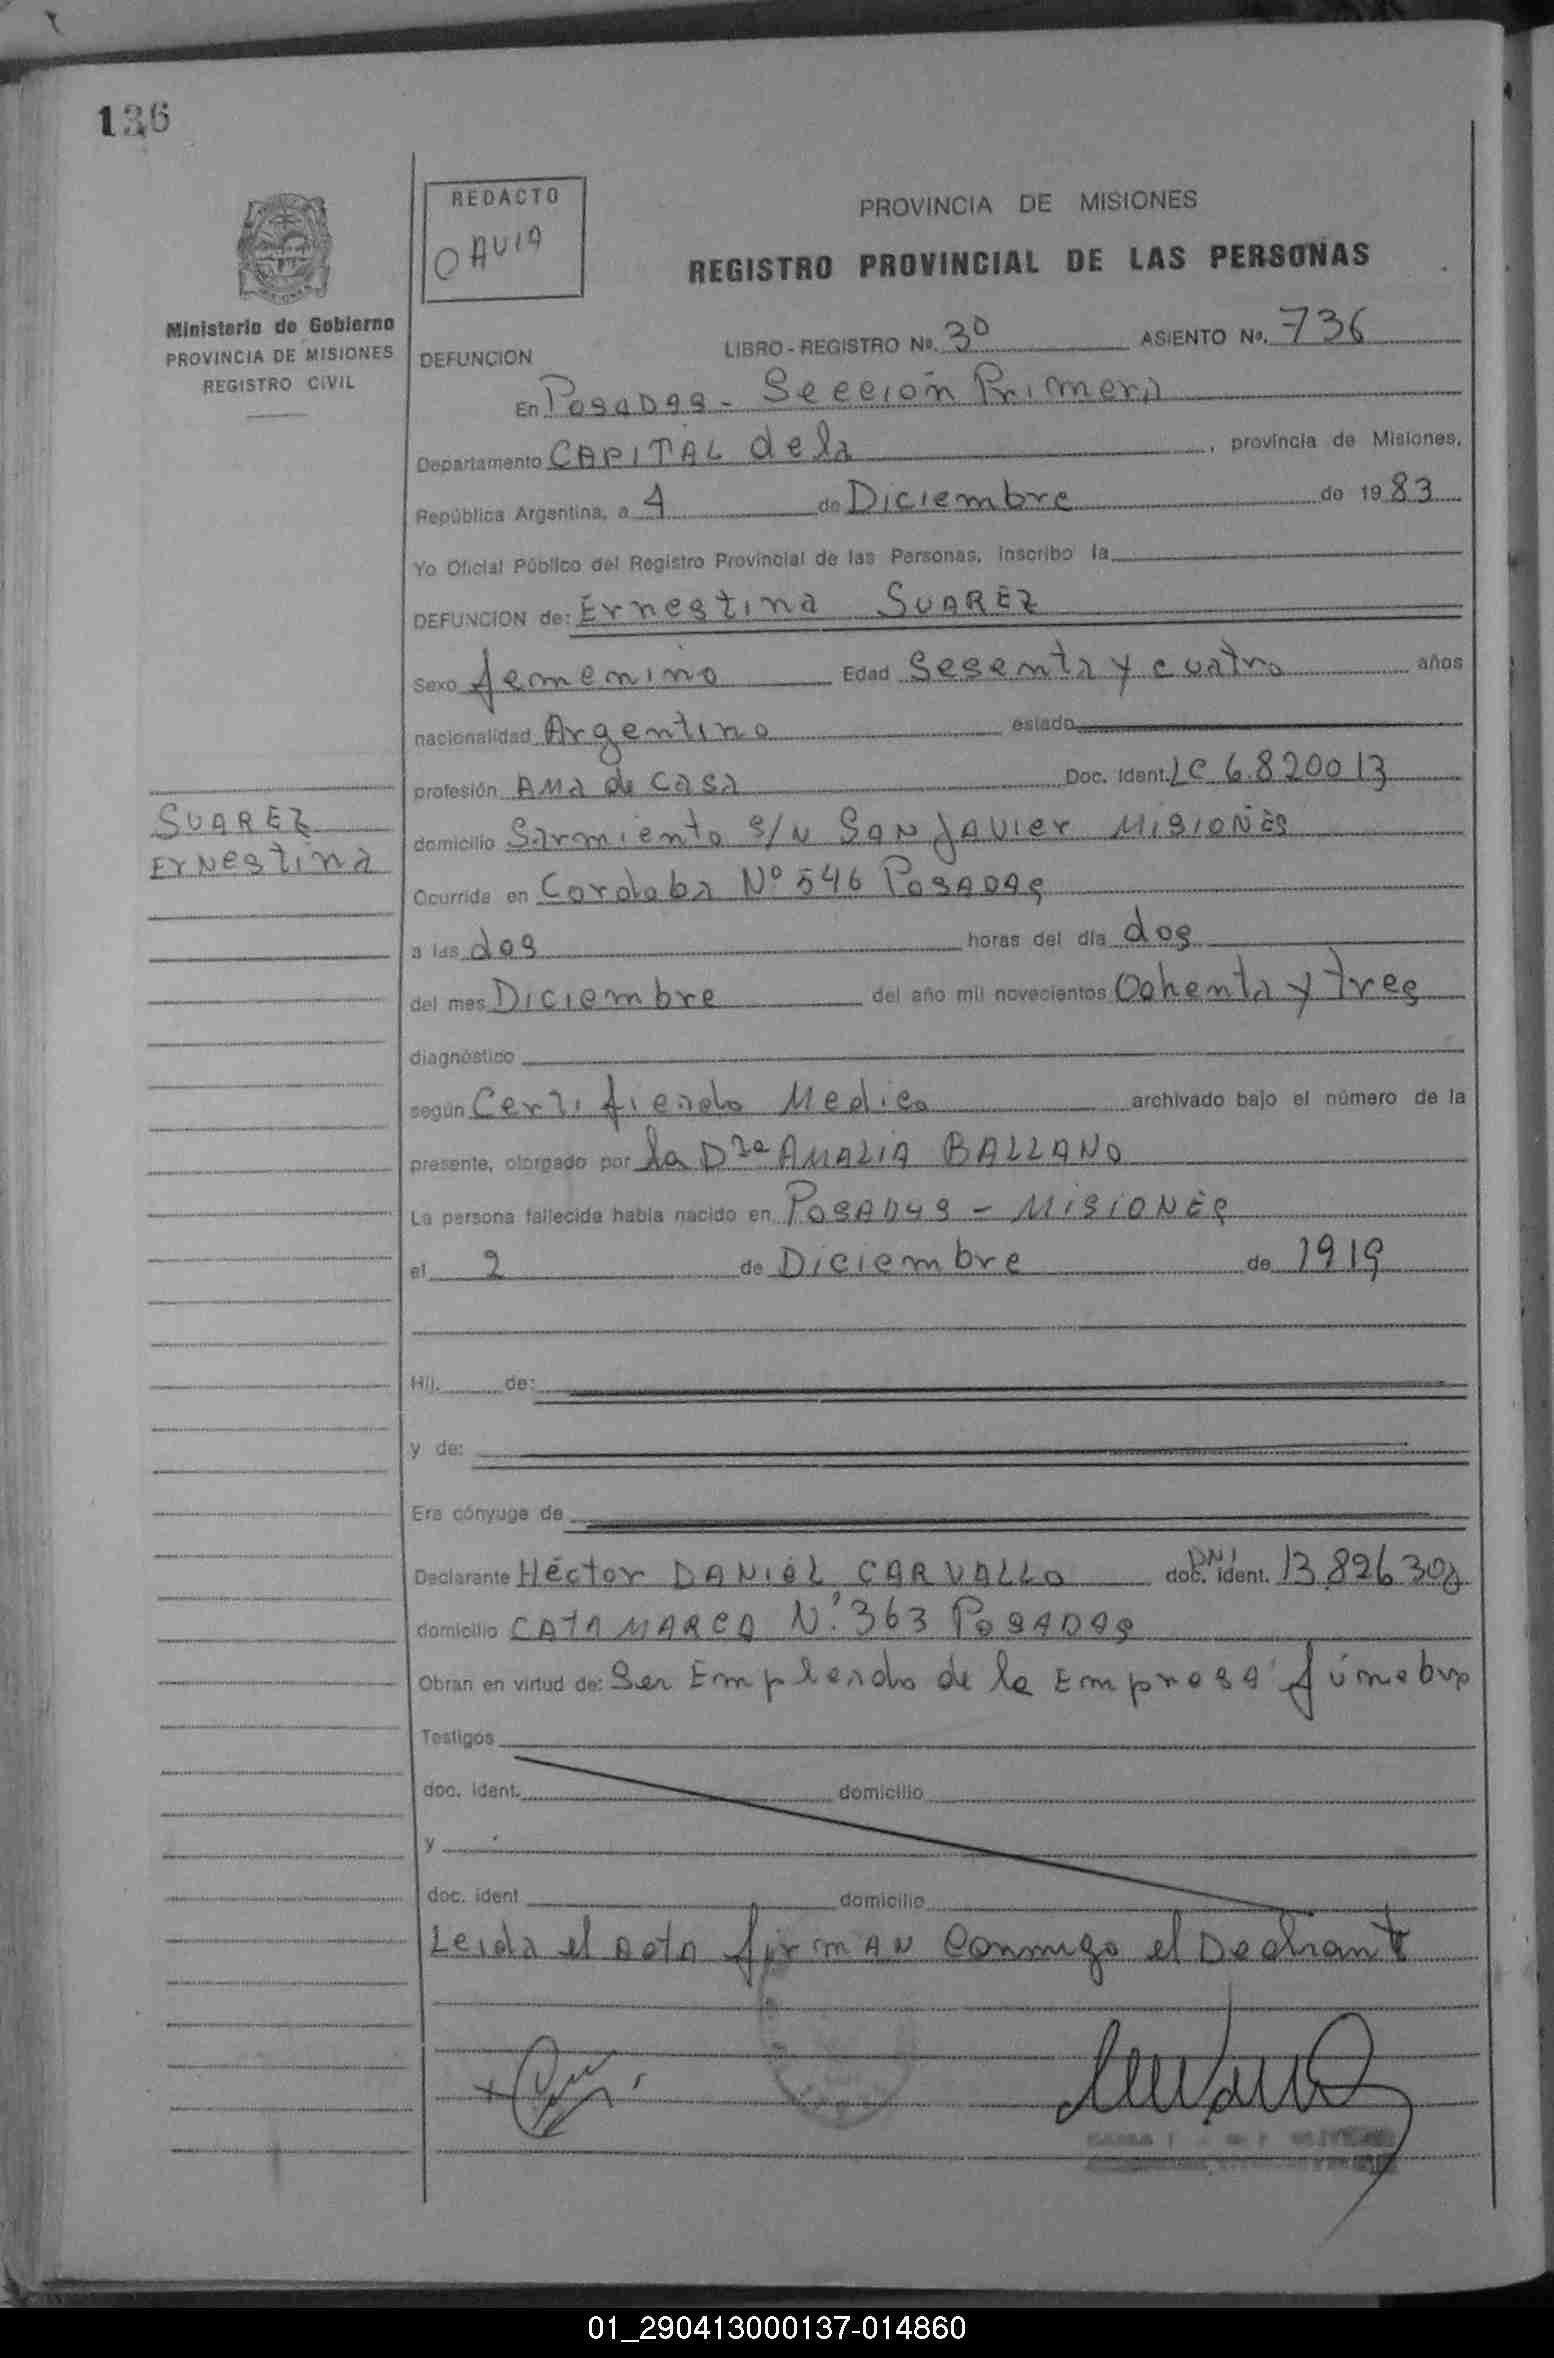 136
REDACTO
OAVIA
PROVINCIA DE MISIONES
REGISTRO PROVINCIAL DE LAS PERSONAS
Ministerio de Gobierno
PROVINCIA DE MISIONES
REGISTRO CIVIL
DEFUNCION LIBRO - REGISTRO Nº. 3º ASIENTO Nº. 736
En POSADAS - Sección Primera
Departamento CAPITAL de la , provincia de Misiones,
República Argentina, a 4 de Diciembre de 1983
Yo Oficial Público del Registro Provincial de las Personas, inscribo la
DEFUNCION de: Ernestina SUAREZ
Sexo femenino Edad Sesenta y cuatro años
nacionalidad Argentino estado
profesión AMa de Casa Doc. Ident. LC 6.820013
SUAREZ
ERNestina
domicilio Sarmiento S/N SAN JAVIER MISIONES
Ocurrida en Cordoba Nº 546 POSADAS
a las dos horas del día dos
del mes Diciembre del año mil novecientos Oohenta y tres
diagnóstico
según Certificado Medico archivado bajo el número de la
presente, otorgado por la Dra AMALIA BALLANO
La persona fallecida había nacido en POSADAS - MISIONES
el 2 de Diciembre de 1919
Hij. de:
y de:
Era cónyuge de
Declarante Héctor DANIEL CARVALLO DNI doc. ident. 13.826.308
domicilio CATAMARCA N.º 363 POSADAS
Obran en virtud de: Ser Empleado de la Empresa fúnebre
Testigos
doc. ident. domicilio
y
doc. ident domicilio
Leida el Acta firmAN Conmigo el Declarante
01_290413000137-014860